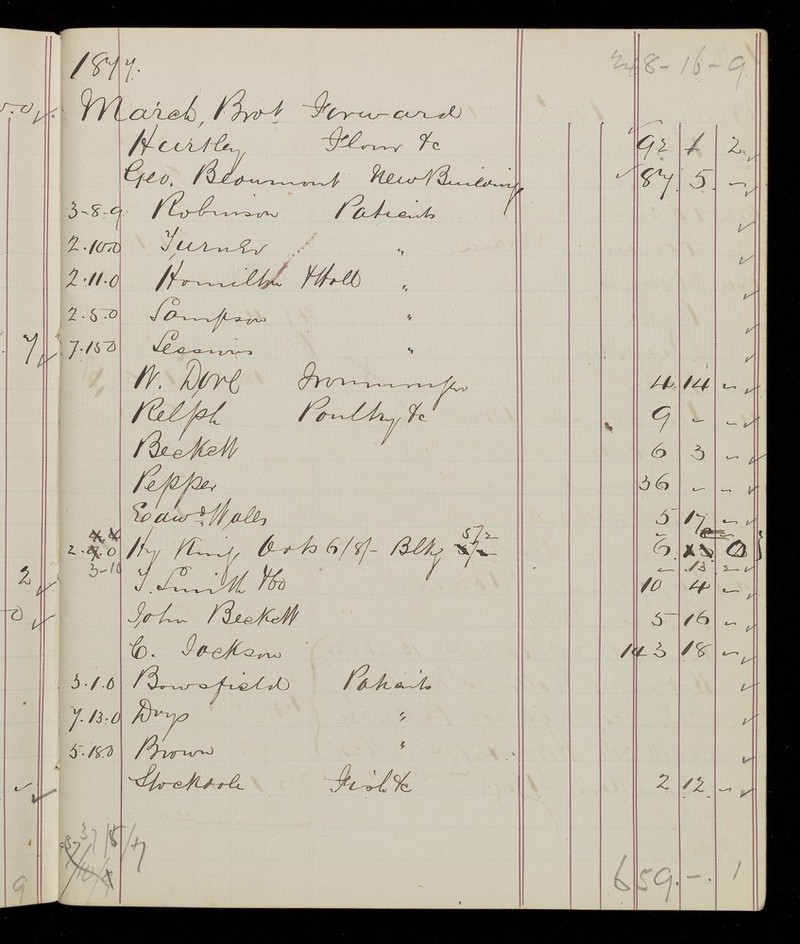 1877. 248-16-9
March, Brot Forward
Hurtley Flour &c 92 1 2
Geo. Beaumont New Building 87 5 -
3-8-9 Robinson Patients
2.10.0 Turner "
2.11.0 Hamilton & Hall "
2.5.0 Sampson "
7.15.0 Sessions "
W. Dove Ironmonger 4 14 -
Relph Poultry &c 9 - -
Beckett 6 3 -
Pepper 36 - -
Edwd. Walls 5 17 -
5/2
Hy King Oats 6/8/- Blkg 6 0
3-10 - 13 -
T. Smith & Co 10 4 -
John Beckett 5 16 -
C. Jackson 143 18 -
3.1.0 Bowsfield Patients
7.13.0 Dry "
5.18.0 Brown "
Stockdale Fish &c 2 12 -
37/8/7
659.-.1